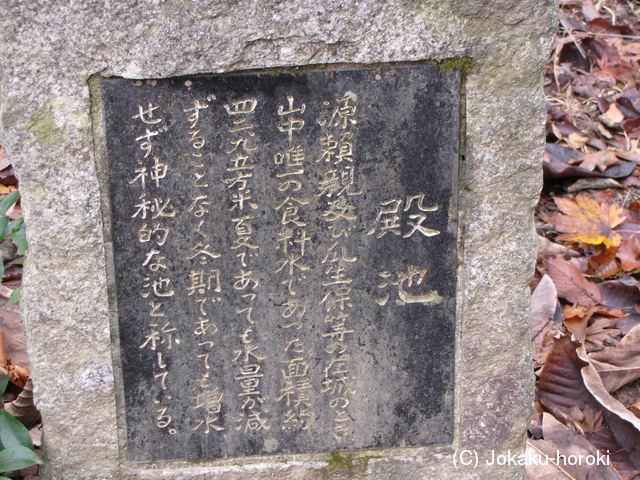 殿池
源頼親及び瓜生保等の在城のとき
山中唯一の食料水であった面積約
四二九五方米夏であっても水量が減
ずることなく冬期であっても増水
せず神秘的な池と称している。
(C) Jokaku-horoki